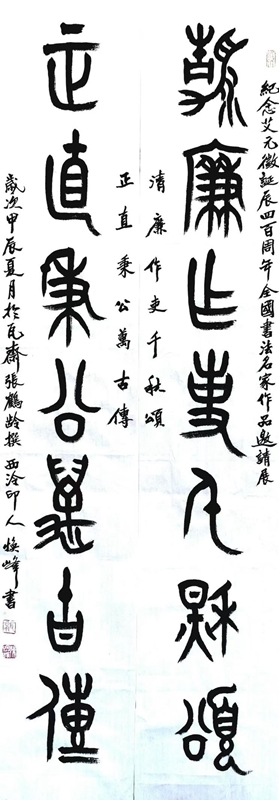 紀念艾元徵誕辰四百周年全國書法名家作品邀請展
清廉作吏千秋頌
清廉作吏千秋頌
正直秉公萬古傳
正直秉公萬古傳
歲次甲辰夏月於瓦齋 張鶴齡撰 西泠印人 煥峰書